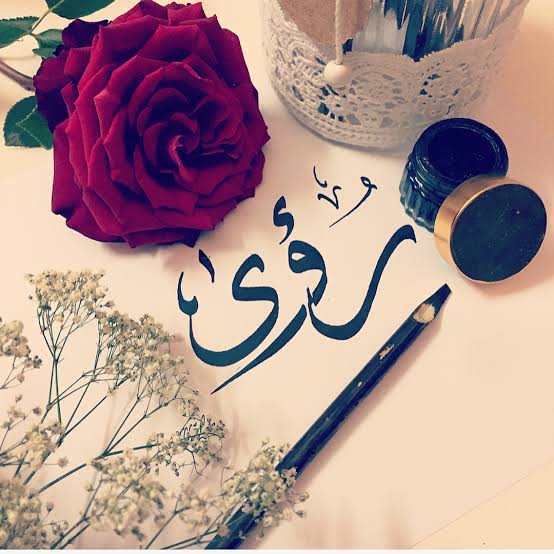 رؤى